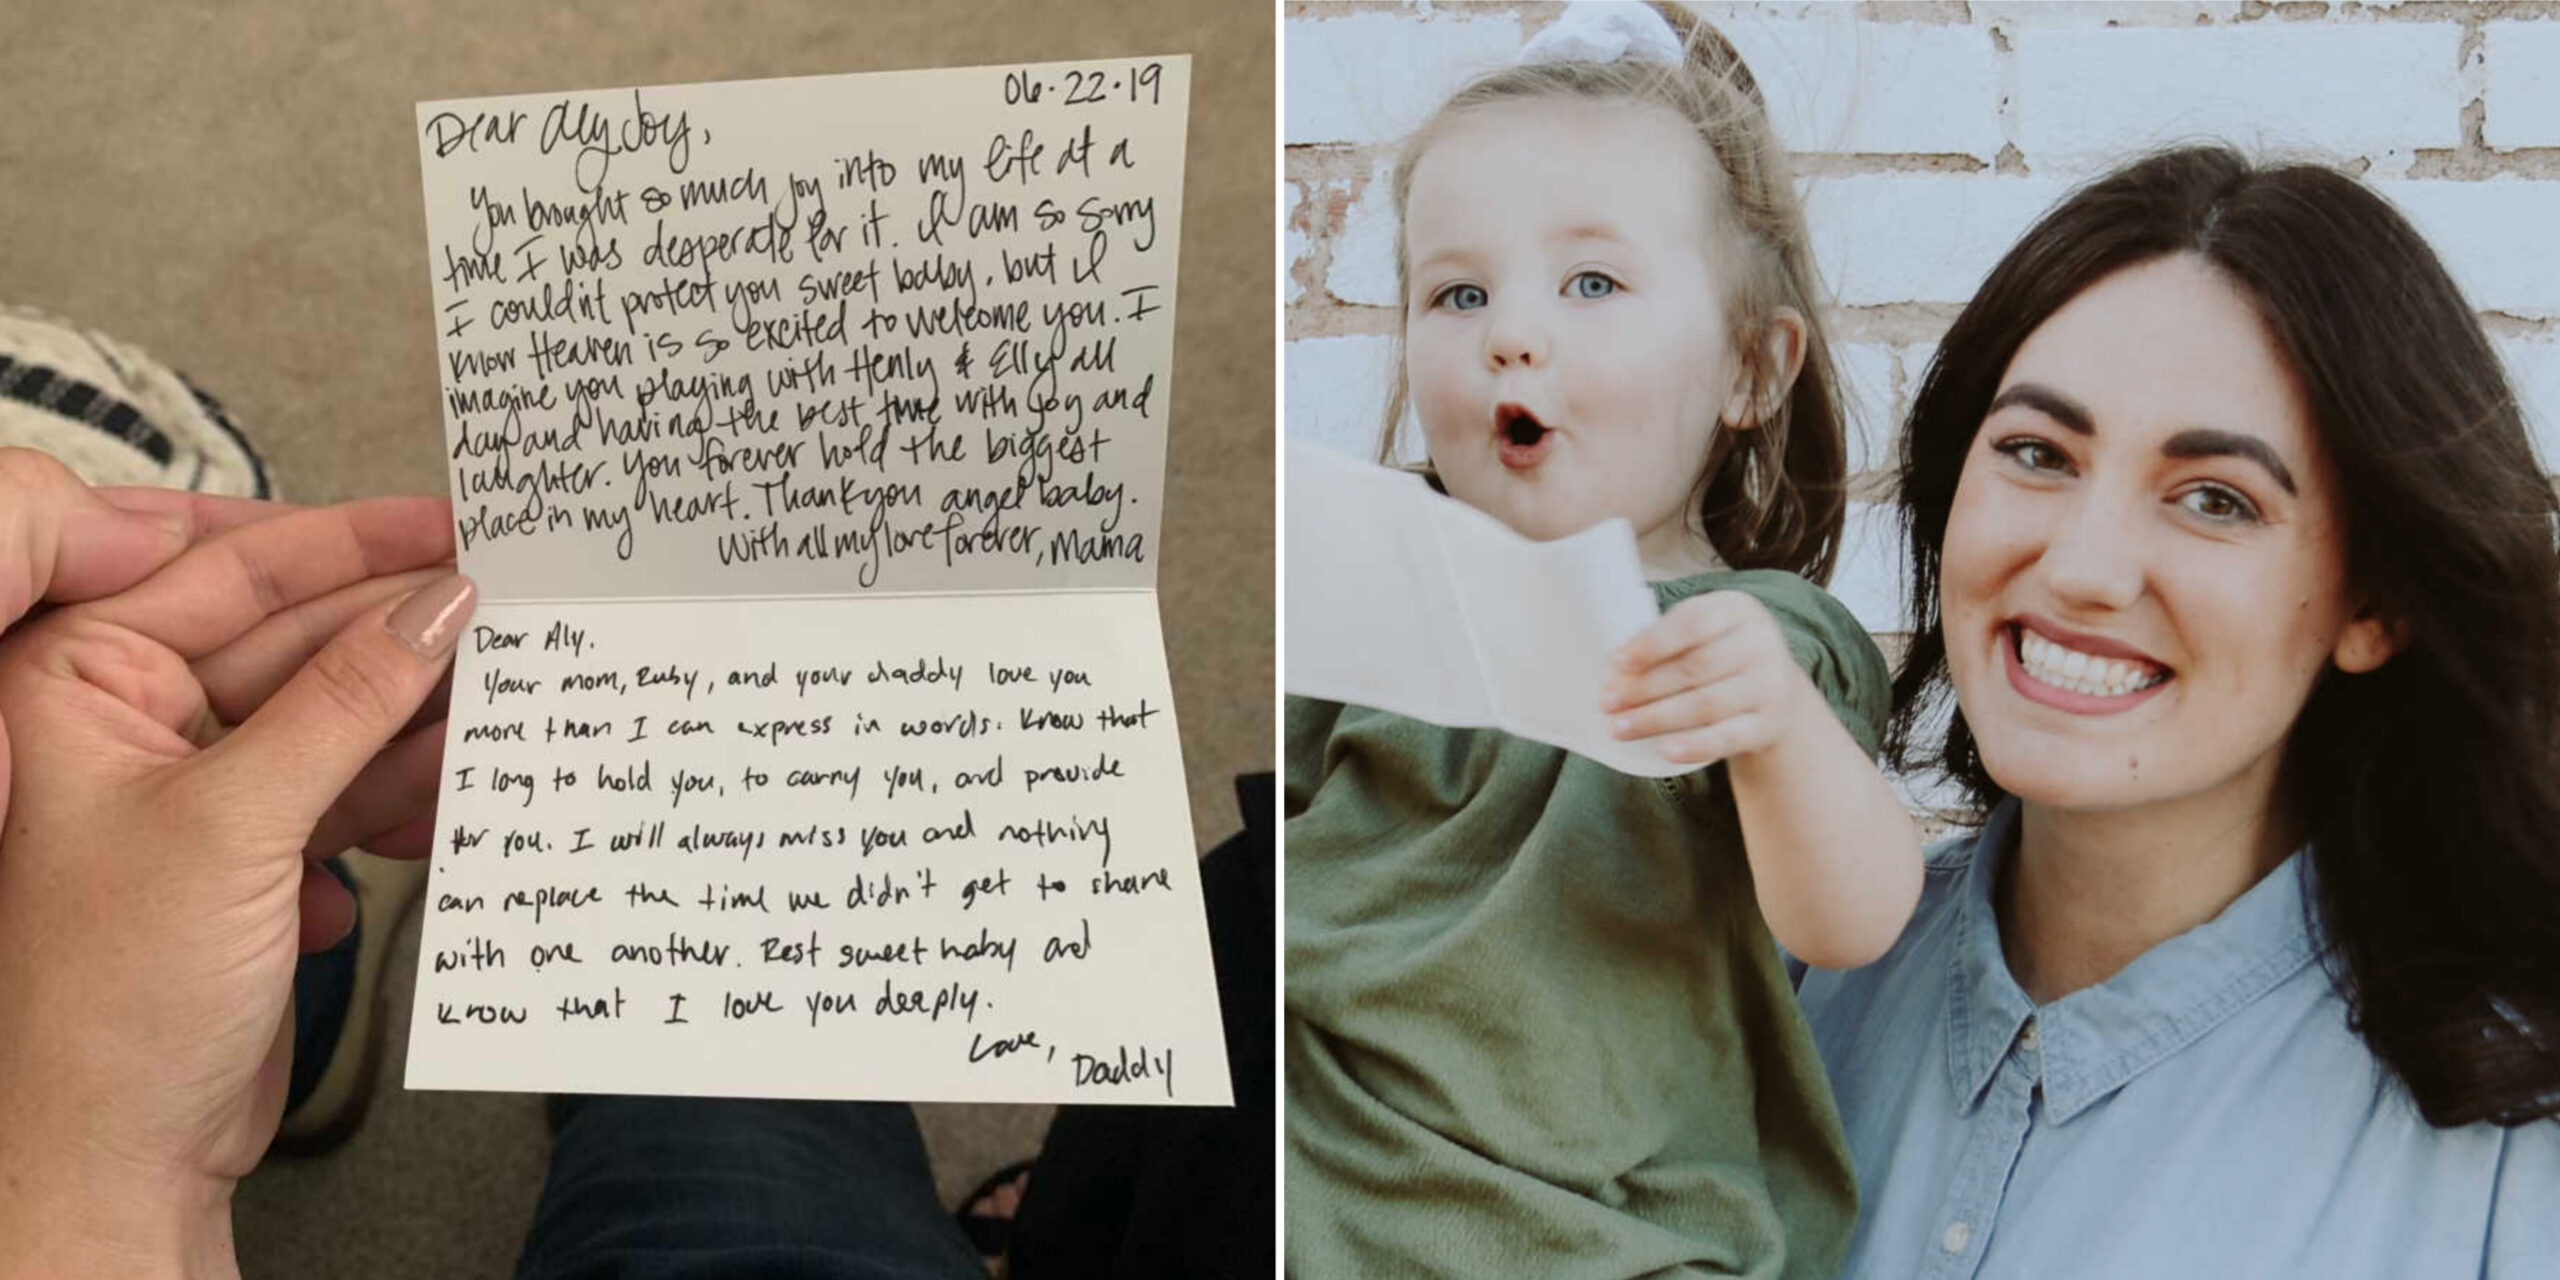 06.22.19
Dear Aly Joy,
You brought so much joy into my life at a
time I was desperate for it. I am so sorry
I couldn't protect you sweet baby, but I
know Heaven is so excited to welcome you. I
imagine you playing with Henly & Elly all
day and having the best time with joy and
laughter. You forever hold the biggest
place in my heart. Thank you angel baby.
With all my love forever, Mama
Dear Aly.
Your mom, Ruby, and your daddy love you
more than I can express in words. Know that
I long to hold you, to carry you, and provide
for you. I will always miss you and nothing
can replace the time we didn't get to share
with one another. Rest sweet baby and
know that I love you deeply.
Love,
Daddy